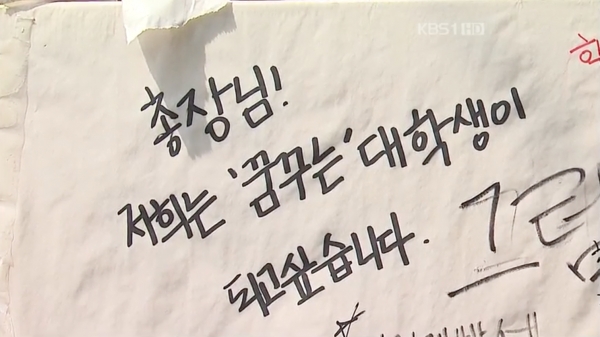 KBS1 HD
총장님!
저희는 '꿈꾸는' 대학생이
되고싶습니다.